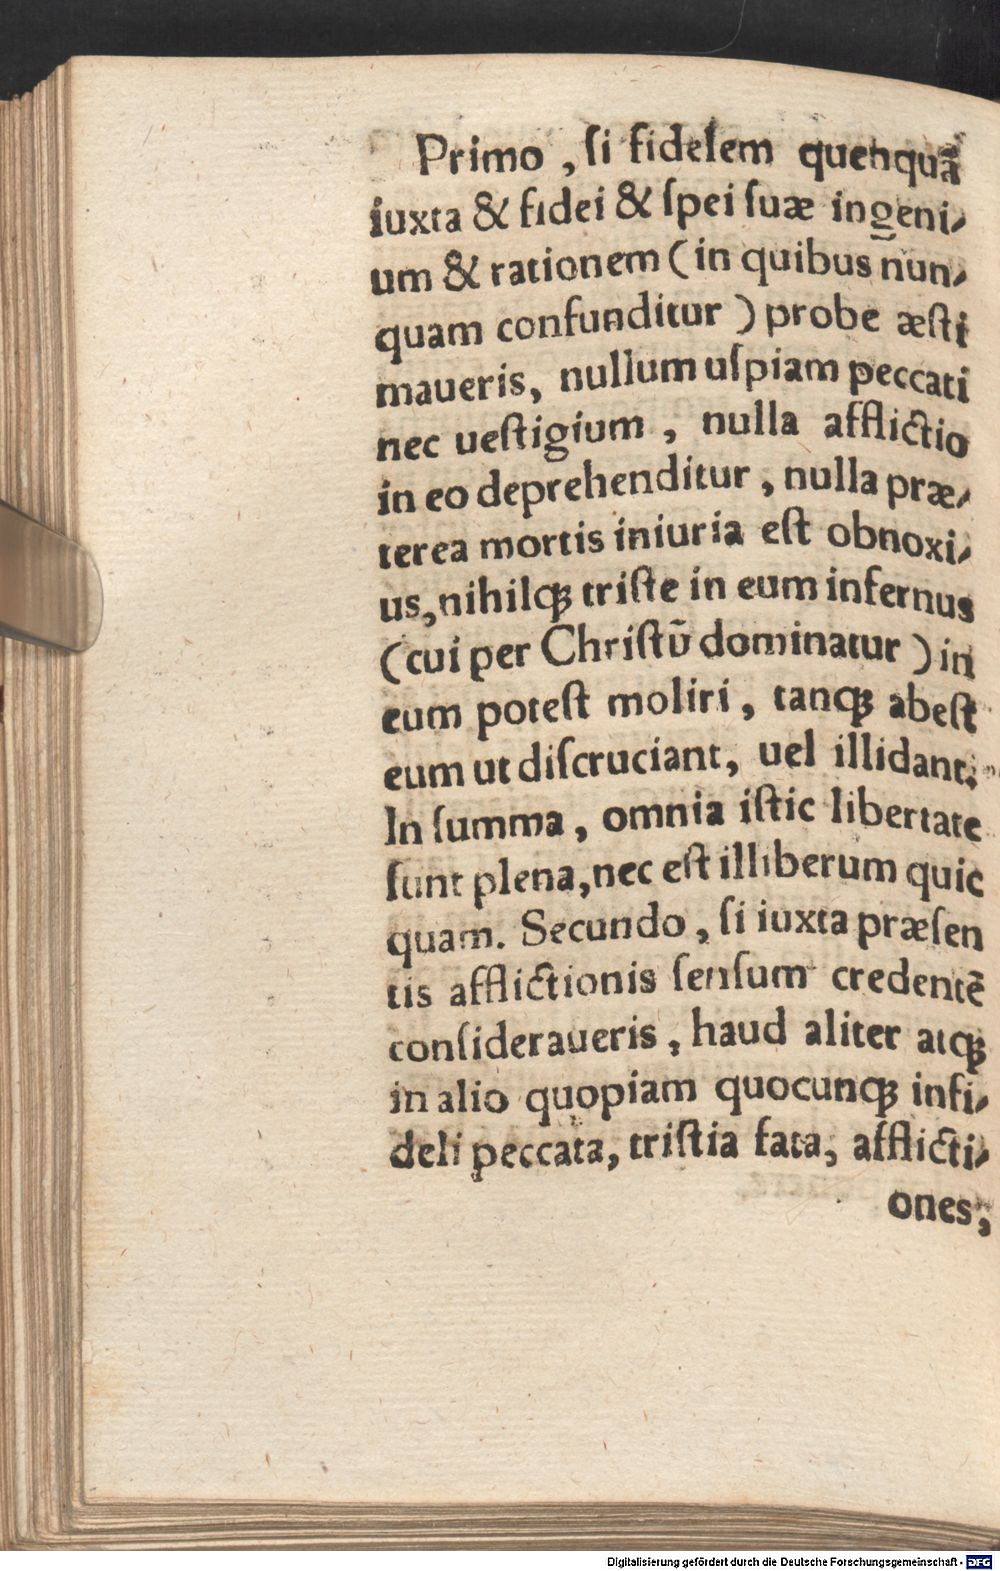 Primo, ſi fidelem quenquã
iuxta & fidei & ſpei ſuæ ingeni⸗
um & rationem (in quibus nun⸗
quam confunditur) probe æſti
maueris, nullum uſpiam peccati
nec ueſtigium, nulla afflictio
in eo deprehenditur, nulla præ⸗
terea mortis iniuria eſt obnoxi⸗
us, nihilqꝫ triſte in eum infernus
(cui per Chriſtũ dominatur) in
eum poteſt moliri, tanqꝫ abeſt
eum ut diſcruciant, uel illidant.
In ſumma, omnia iſtic libertate
ſunt plena, nec eſt illiberum quic
quam. Secundo, ſi iuxta præſen
tis afflictionis ſenſum credentẽ
conſideraueris, haud aliter atqꝫ
in alio quopiam quocunqꝫ infi⸗
deli peccata, triſtia fata, afflicti⸗
ones,
Digitalisierung gefördert durch die Deutsche Forschungsgemeinschaft - DFG